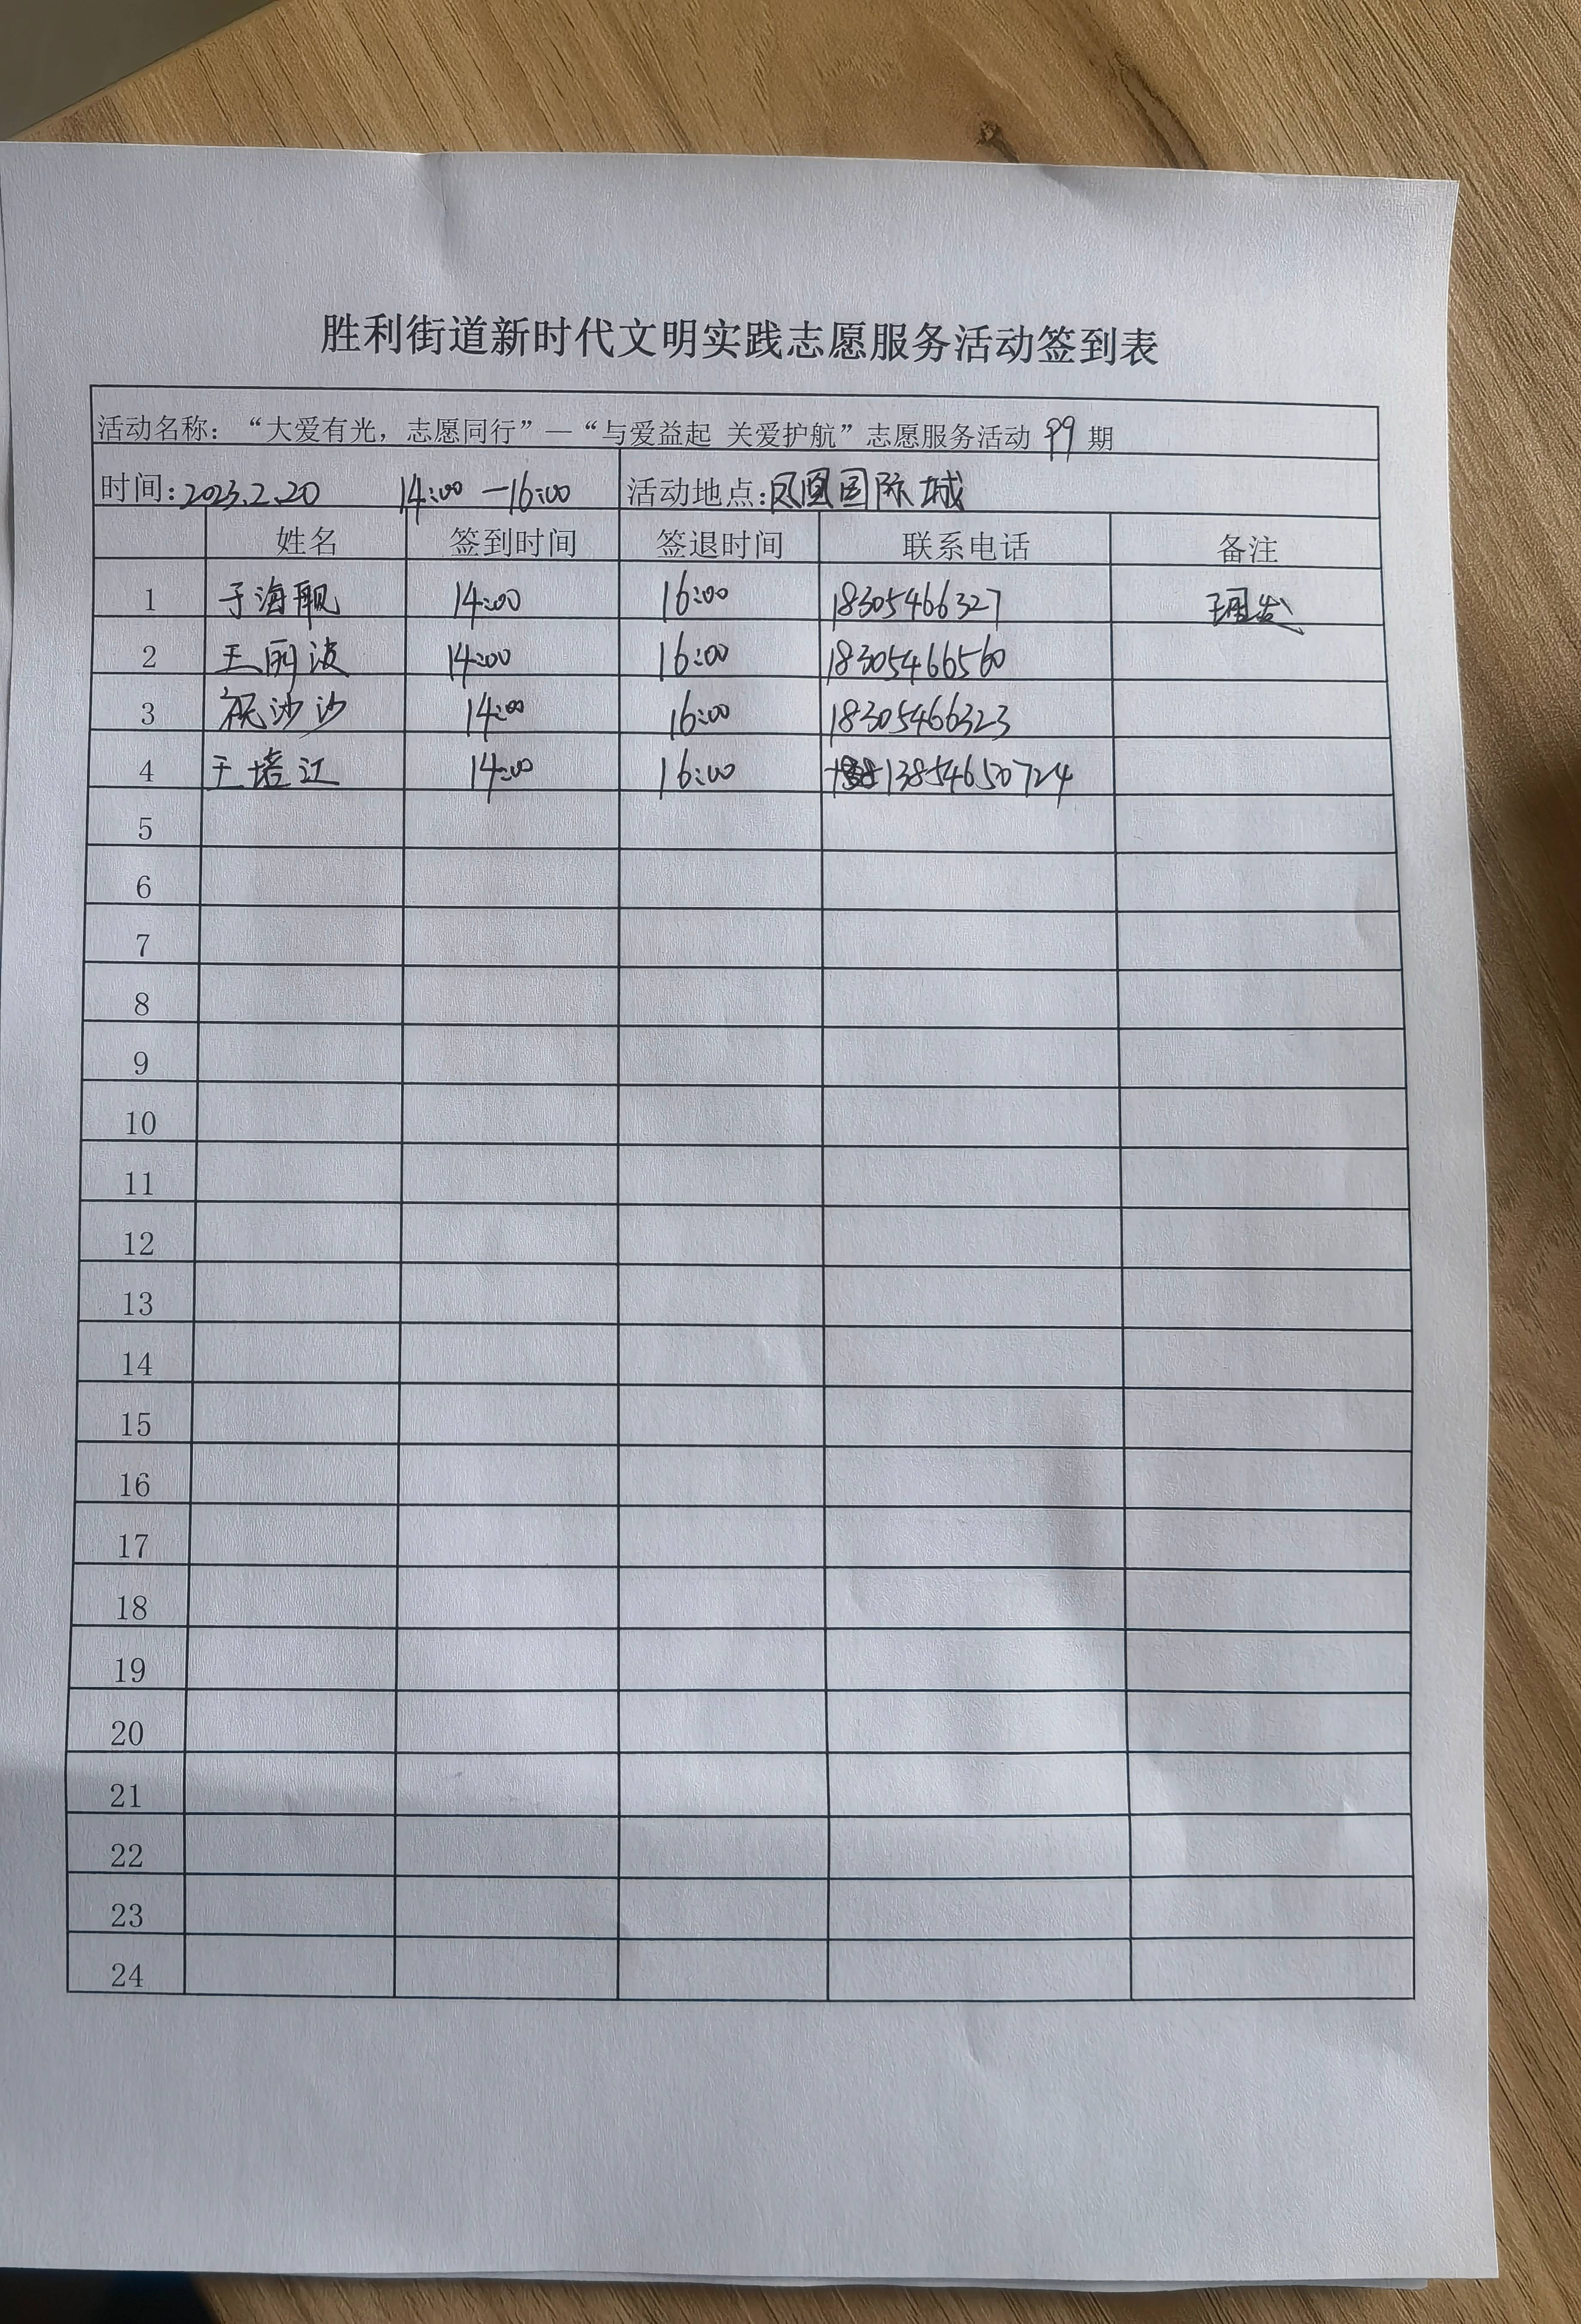 胜利街道新时代文明实践志愿服务活动签到表
活动名称：“大爱有光，志愿同行”—“与爱益起 关爱护航”志愿服务活动 99 期
时间：2023.2.20 14:00—16:00 活动地点：凤凰国际城
姓名 签到时间 签退时间 联系电话 备注
1 于海靓 14:00 16:00 18305466327 理发
2 王丽波 14:00 16:00 18305466560
3 祝沙沙 14:00 16:00 18305466323
4 王培江 14:00 16:00 13854650724
5
6
7
8
9
10
11
12
13
14
15
16
17
18
19
20
21
22
23
24